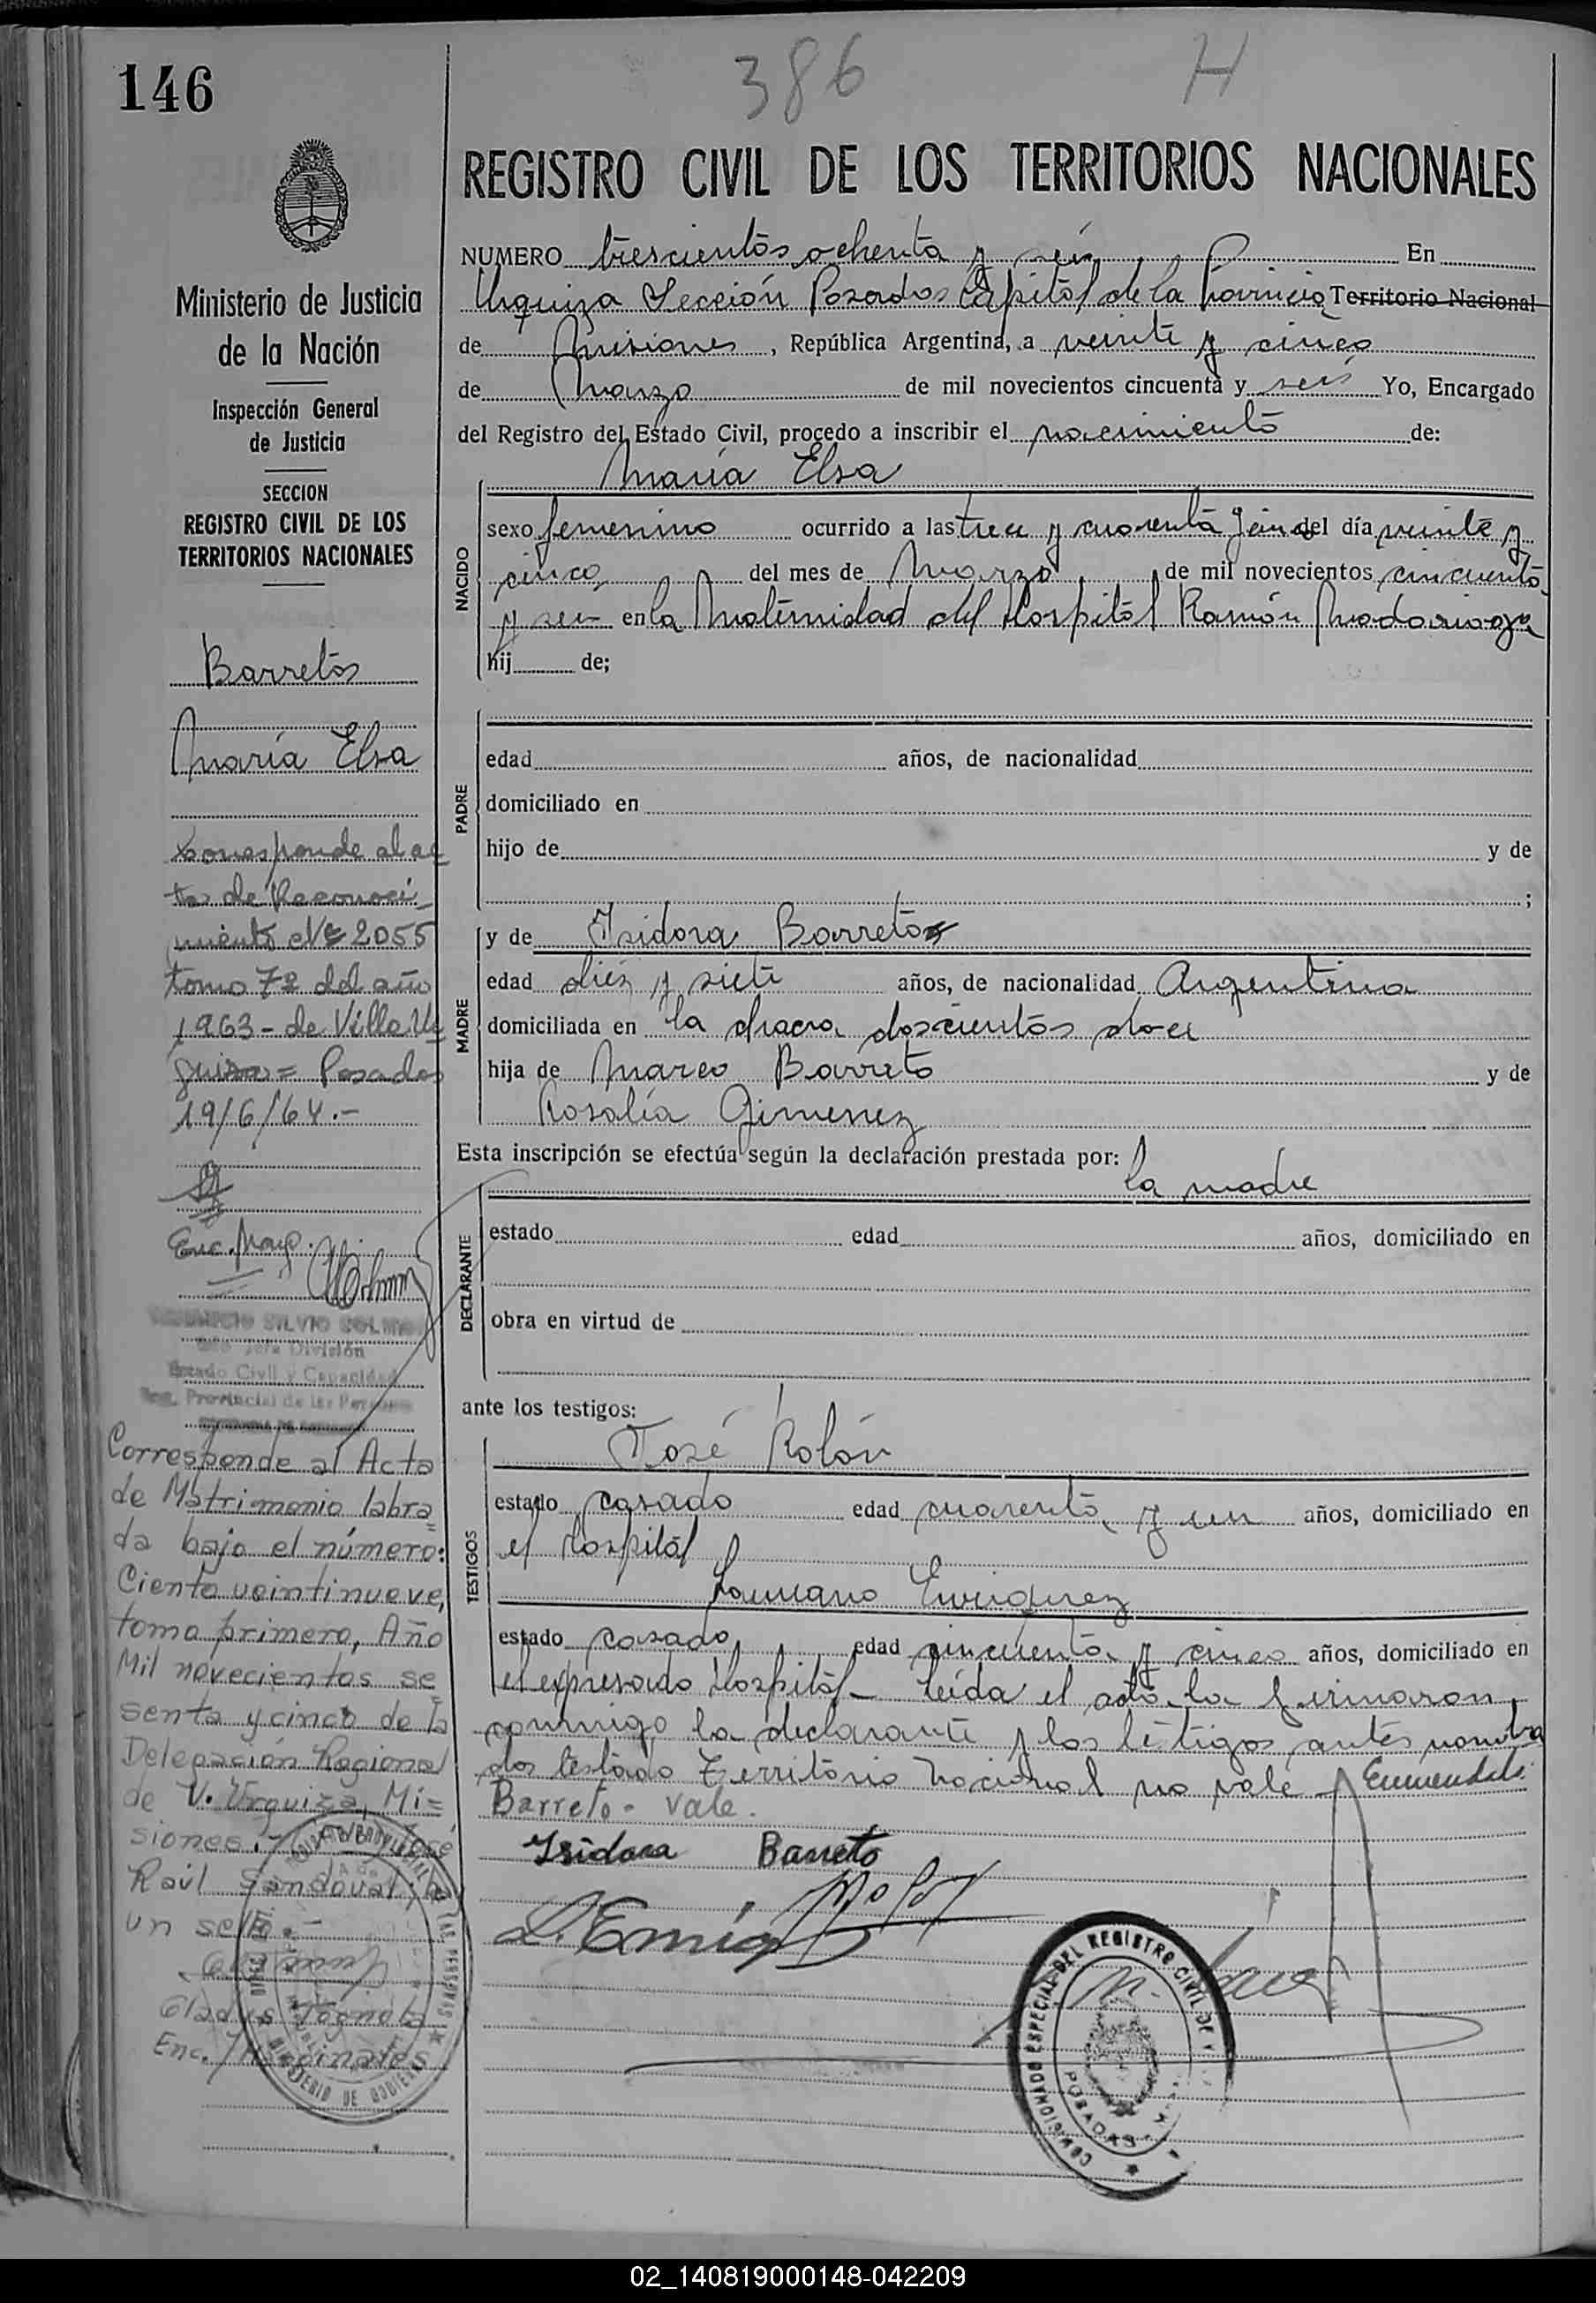 146
386
H
REGISTRO CIVIL DE LOS TERRITORIOS NACIONALES
Ministerio de Justicia
de la Nación
Inspección General
de Justicia
SECCION
REGISTRO CIVIL DE LOS
TERRITORIOS NACIONALES
Barreto
María Elsa
Corresponde al ac
ta de Reconoci-
miento Nº 2055
tomo 7º del año
1963 - de Villa Ur
quiza = Posadas
19/6/64.-
Enc.
SILVIO
Jefe División
Estado Civil y Capacidad
Reg. Provincial de las Personas
Corresponde al Acta
de Matrimonio labra
da bajo el número:
Ciento veintinueve,
tomo primero, Año
Mil novecientos se
senta y cinco de la
Delegación Regional
de V. Urquiza, Mi=
siones.- José
Raúl Sandoval
un sello.-
Gladys
Enc. / Marginales
NUMERO trescientos ochenta y seis En
Urquiza Sección Posadas Capital de la Provincia Territorio Nacional
de Misiones, República Argentina, a veinte y cinco
de Marzo de mil novecientos cincuenta y seis Yo, Encargado
del Registro del Estado Civil, procedo a inscribir el nacimiento de:
María Elsa
NACIDO
sexo femenino ocurrido a las trece y cuarenta y del día veinte y
cinco del mes de Marzo de mil novecientos cincuenta
y seis en la Maternidad del Hospital Ramón Madariaga
hij de;
PADRE
edad años, de nacionalidad
domiciliado en
hijo de y de
;
MADRE
y de Isidora Barreto
edad diez y siete años, de nacionalidad Argentina
domiciliada en la chacra doscientos doce
hija de Marco Barreto y de
Rosalía Gimenez
Esta inscripción se efectúa según la declaración prestada por:
la madre
DECLARANTE
estado edad años, domiciliado en
obra en virtud de
ante los testigos:
TESTIGOS
José Rolón
estado casado edad cuarenta y un años, domiciliado en
el hospital
Enriquez
estado casado edad cincuenta y cinco años, domiciliado en
el expresado Hospital - leída el acta la firmaron
conmigo la declarante y los testigos antes nombra
dos testado Territorio Nacional no vale - Enmendado:
Barreto - vale.
Isidora Barreto
COMISIONADO ESPECIAL DEL REGISTRO CIVIL DE
POSADAS
MINISTERIO DE GOBIERNO
02_140819000148-042209